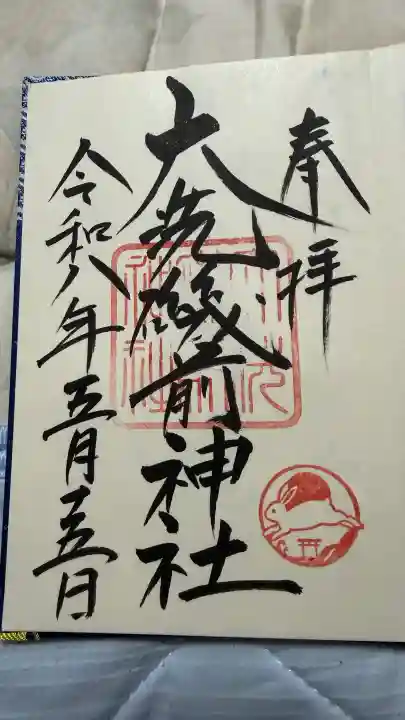 奉拝
大洗磯前神社
令和八年五月十五日